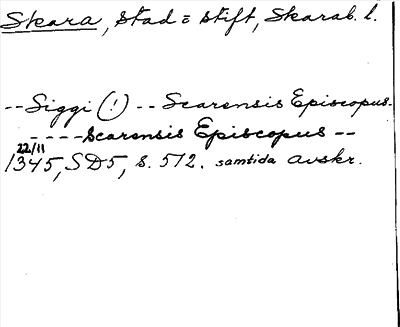 Skara, Stad = stift, Skarab. l.
-- Siggi (!) -- Scarensis Episcopus.
---- Scarensis Episcopus --
22/11
1345, SD5, s. 512. samtida avskr.